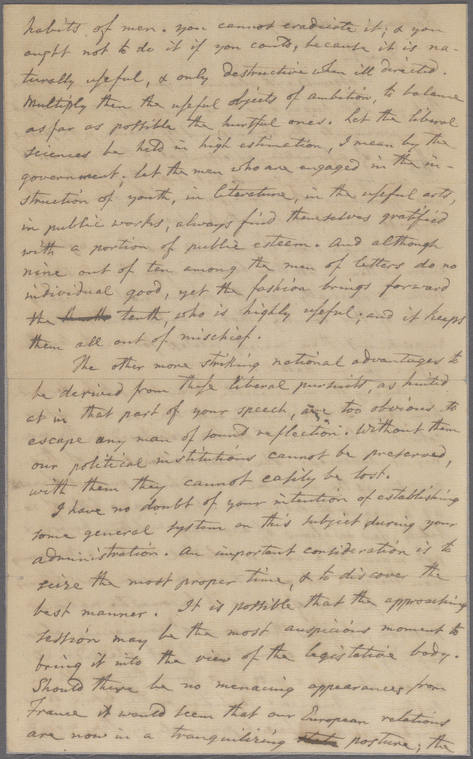 habits of men. you cannot eradicate it; & you
ought not to do it if you could, because it is na-
turally useful, & only destructive when ill directed.
Multiply then the useful objects of ambition, to balance
as far as possible the hurtful ones. Let the liberal
sciences be held in high estimation, I mean by the
government; let the men who are engaged in the in-
struction of youth, in literature, in the useful arts,
in public works, always find themselves gratified
with a portion of public esteem. And although
nine out of ten among the men of letters do no
individual good, yet the fashion brings forward
the tenth, who is highly useful; and it keeps
them all out of mischief.
The other more striking national advantages to
be derived from these liberal pursuits, as hinted
at in that part of your speech, are too obvious to
escape any man of sound reflection. Without them
our political institutions cannot be preserved,
with them they cannot easily be lost.
I have no doubt of your intention of establishing
some general system on this subject during your
administration. An important consideration is to
seize the most proper time, & to discover the
best manner. It is possible that the approaching
session may be the most auspicious moment to
bring it into the view of the legislative body.
Should there be no menacing appearances from
France it would seem that our European relations
are now in a tranquilizing posture; the